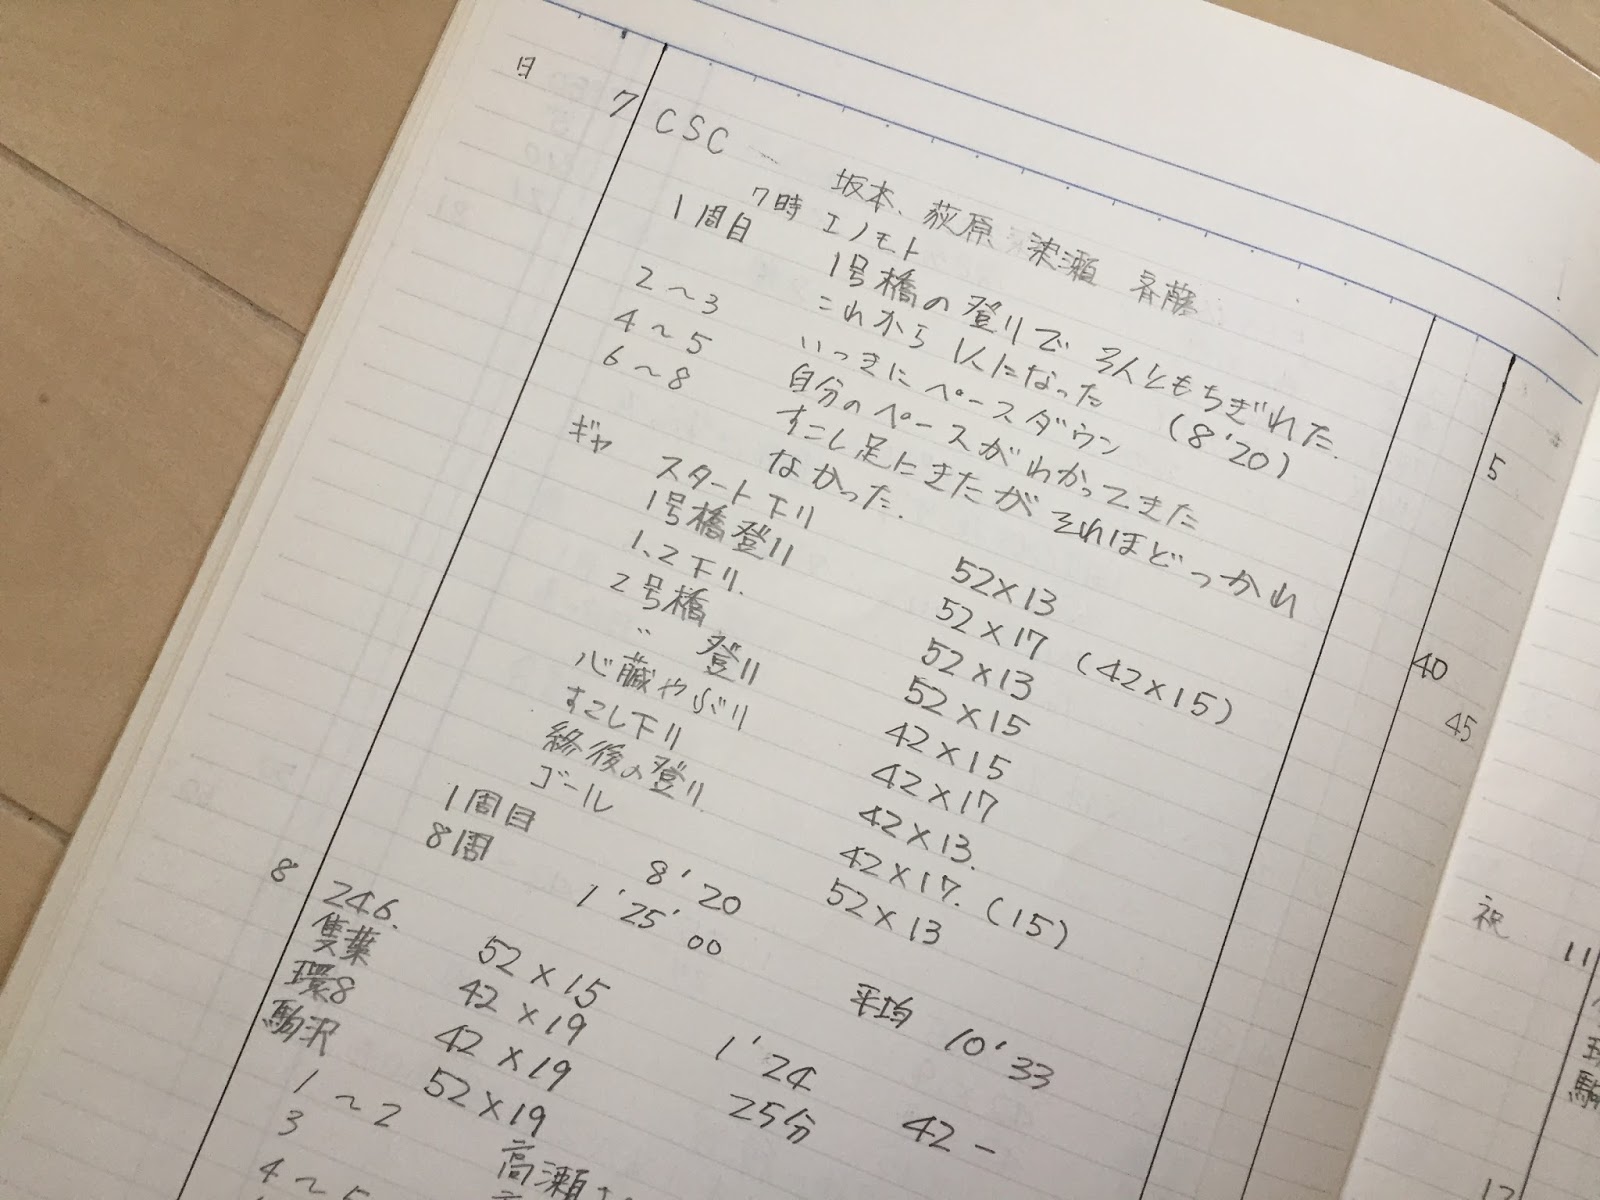 日 7 CSC 坂本、荻原 染瀬 斉藤
7時 エノモト
1周目 1号橋の登りで 3人ともちぎれた.
2〜3 これから 1人になった (8'20)
4〜5 いっきにペースダウン
6〜8 自分のペースがわかってきた
すこし足にきたが それほどつかれ
なかった.
5
ギヤ スタート下り 52×13
1号橋登り 52×17 (42×15)
1、2下り. 52×13
2号橋 52×15
〃 登り 42×15
心臓やぶり 42×17
すこし下り 42×13.
終後の登り 42×17. (15)
ゴール 52×13
40
45
1周目 8'20
8周 1'25'00 平均 10'33
8 246. 52×15
隻葉 42×19 1'24
環8 42×19 25分 42-
駒沢 52×19
1〜2 高瀬
3
4〜5
祝 11
駒
12